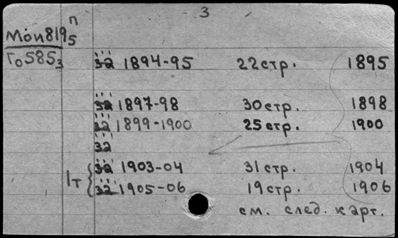 3
п
Мой819 5
Го585 3
32 1894-95 22стр. 1895
32 1897-98 30стр. 1898
32 1899-1900 25стр. 1900
32
32 1903-04 31стр. 1904
1т 32 1905-06 19стр. 1906
см. след. карт.